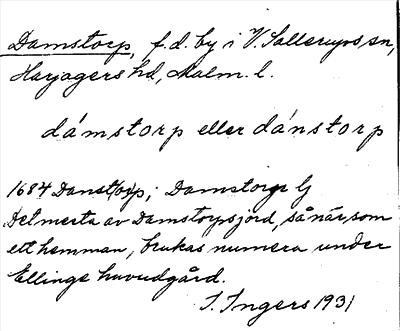 Damstorp, f.d. by i V. Sallerups sn,
Harjagers hd, Malm. l.
dámstorp eller dánstorp
1684 Danstorp; Damstorp Lj
Det mesta av Damstorpsjord, så när som
ett hemman, brukas numera under
Ellinge huvudgård.
I. Ingers 1931